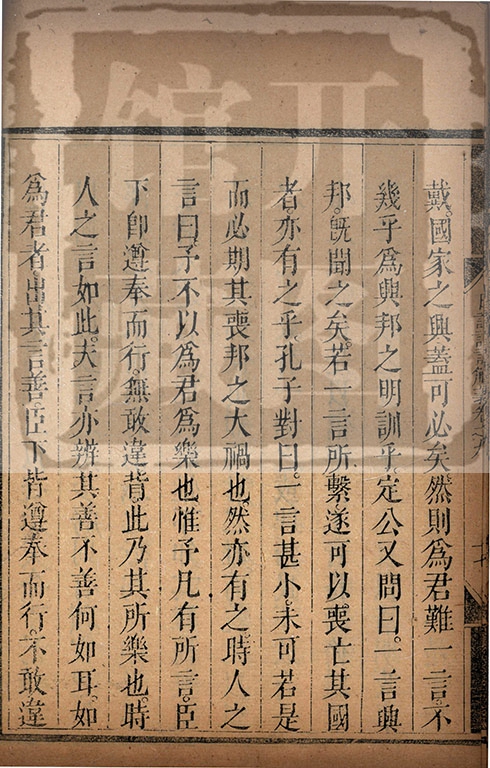 戴。國家之興。蓋可必矣。然則爲君難一言。不
幾乎爲興邦之明訓乎。定公又問曰。一言興
邦。旣聞之矣。若一言所繫。遂可以喪亡其國
者。亦有之乎。孔子對曰。一言甚小。未可若是
而必期其喪邦之大禍也。然亦有之。時人之
言曰。予不以爲君爲樂也。惟予凡有所言。臣
下卽遵奉而行。無敢違背。此乃其所樂也。時
人之言如此。夫言亦辨其善不善何如耳。如
爲君者。出其言善。臣下皆遵奉而行。不敢違